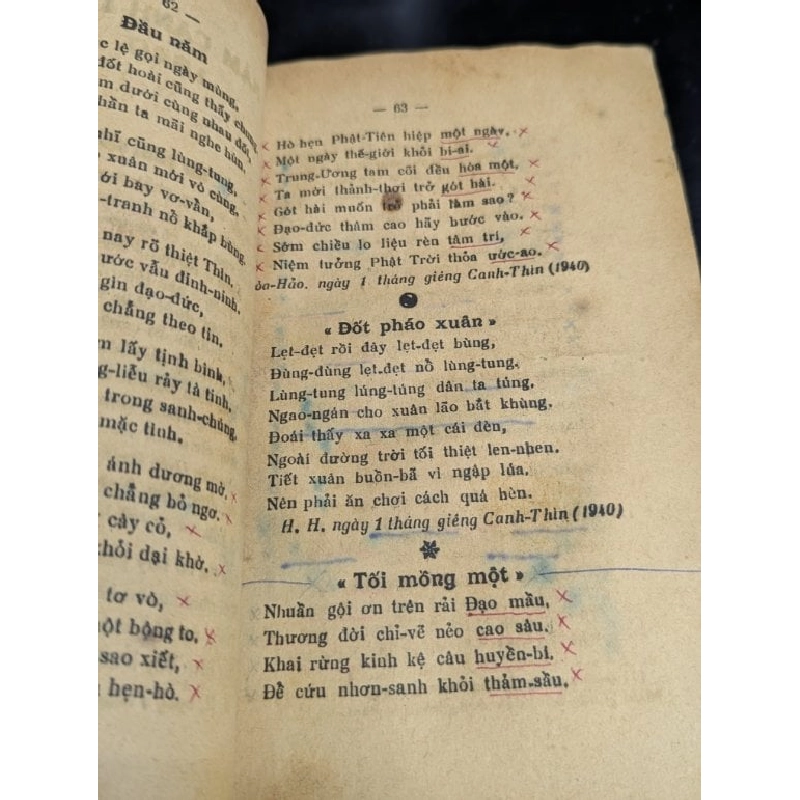 62 —
Đầu năm
lệ gọi ngày mùng,
đốt hoài cũng thấy chung,
dưới cùng nhau đốt,
ta mãi nghe hùn.
nhĩ cũng lùng-tung,
xuân mới vô cùng,
bay vơ-vẩn,
-tranh nồ khắp bùng.
nay rõ thiệt Thìn,
vẫu đinh-ninh.
gìn đạo-đức,
chẳng theo tin.
lấy tịnh bình,
-liễu rảy tà tinh.
trong sanh-chúng,
mặc tình.
ánh dương mờ,
chẳng bỏ ngơ.
cày cỏ,
khỏi dại khờ.
tơ vò,
một bộng to.
sao xiết,
hẹn-hò.
— 63 —
Hò hẹn Phật-Tiên hiệp một ngày.
Một ngày thế-giới khỏi bi-ai.
Trung-Ương tam cõi đều hòa một,
Ta mới thảnh-thơi trở gót hài.
Gót hài muốn trở phải làm sao?
Đạo-đức thâm cao hãy bước vào.
Sớm chiều lo liệu rèn tâm trí,
Niệm tưởng Phật Trời thỏa ước-ao.
Hảo, ngày 1 tháng giêng Canh-Thìn (1940)
« Đốt pháo xuân »
Lẹt-đẹt rồi đây lẹt-đẹt bùng,
Đùng-đùng lẹt-đẹt nồ lùng-tung.
Lùng-tung lúng-túng dân ta túng,
Ngao-ngán cho xuân lão bắt khùng.
Đoái thấy xa xa một cái đèn,
Ngoài đường trời tối thiệt len-nhen.
Tiết xuân buồn-bã vì ngập lúa,
Nên phải ăn chơi cách quá hèn.
H. H. ngày 1 tháng giêng Canh-Thìn (1940)
« Tối mồng một »
Nhuần gội ơn trên rải Đạo mầu,
Thương đời chỉ-vẽ nẻo cao sâu.
Khai rừng kinh kệ câu huyền-bí,
Đề cứu nhơn-sanh khỏi thảm-sầu.